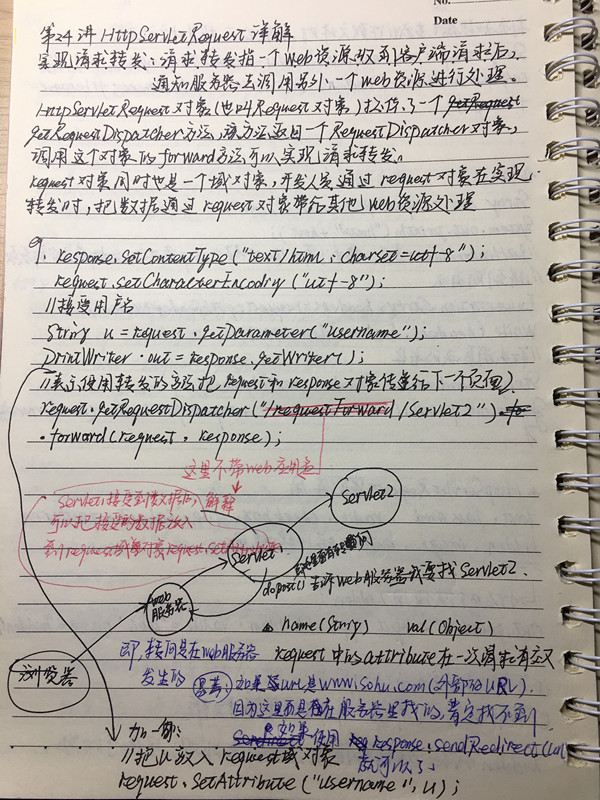 No.
Date
第24讲 HttpServletRequest 详解
实现请求转发:请求转发指一个web资源收到客户端请求后,
通知服务器去调用另外一个web资源进行处理。
HttpServletRequest对象(也叫Request对象)提供了一个 getRequest
getRequestDispatcher方法,该方法返回一个RequestDispatcher对象,
调用这个对象的forward方法可以实现请求转发。
request对象同时也是一个域对象,开发人员通过request对象在实现
转发时,把数据通过request对象带给其他web资源处理
9. response.setContentType("text/html;charset=utf-8");
request.setCharacterEncodry("utf-8");
//接受用户名
String u=request.getParameter("username");
PrintWriter out=response.getWriter();
//表示使用转发的方法把request和response对象传递给下一个页面
request.getRequestDispatcher("/requestForward/Servlet2")
.forward(request, response);
这里不带web应用名
Servlet接受到数据后,解释
可以把接受的数据放入
到request域对象request.set
Servlet2
Servlet
dopost()告诉web服务器我要找Servlet2.
web
服务器
name(String) val(Object)
即 转向是在web服务器 request中的attribute在一次请求有效
发生的 思考:如果url是www.sohu.com(外部的URL).
浏览器
因为这里是在服务器里找的,肯定找不到
如果使用 response.sendRedirect(url
就可以了
加一句:
//把u放入request域对象
request.SetAttribute("username",u);